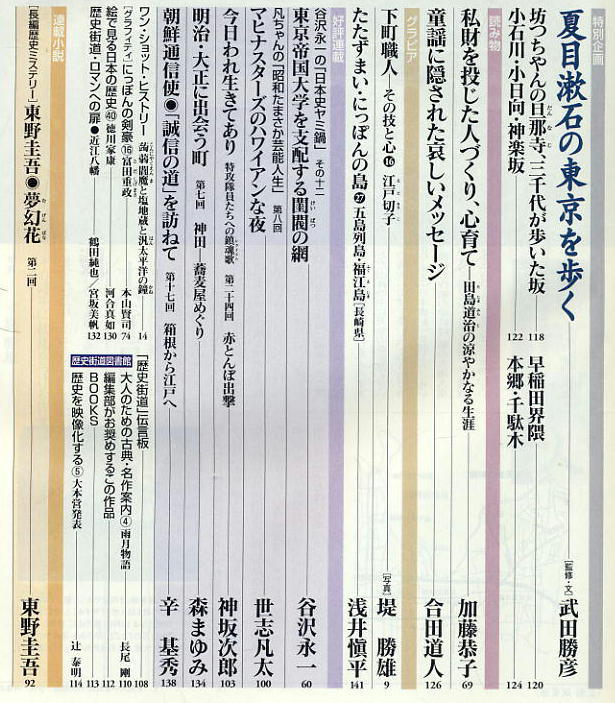 特別企画
夏目漱石の東京を歩く
[監修・文]武田勝彦
坊つちゃんの旦那寺、三千代が歩いた坂 118
早稲田界隈 120
小石川・小日向・神楽坂 122
本郷・千駄木 124
読み物
私財を投じた人づくり、心育て―田島道治の涼やかなる生涯 加藤恭子 69
童謡に隠された哀しいメッセージ 合田道人 126
グラビア
下町職人―その技と心⑯ 江戸切子 [写真]堤 勝雄 9
たたずまい・にっぽんの島㉗ 五島列島・福江島[長崎県] 浅井愼平 141
好評連載
谷沢永一の「日本史ヤミ鍋」 その十二
東京帝国大学を支配する閨閥の網 谷沢永一 60
凡ちゃんの「昭和たまさか芸能人生」 第八回
マヒナスターズのハワイアンな夜 世志凡太 100
今日われ生きてあり 特攻隊員たちへの鎮魂歌 第二十四回 赤とんぼ出撃 神坂次郎 103
明治・大正に出会う町 第七回 神田―蕎麦屋めぐり 森まゆみ 134
朝鮮通信使◉「誠信の道」を訪ねて 第十七回 箱根から江戸へ 辛 基秀 138
ワン・ショット・ヒストリー 蒟蒻閻魔と塩地蔵と汎太平洋の鐘 14
[グラフィティ]にっぽんの剣豪⑯ 富田重政 本山賢司 74
絵で見る日本の歴史㊵ 徳川家康 河合真如 130
歴史街道・ロマンへの扉● 近江八幡 鶴田純也/宮坂美帆 132
「歴史街道」伝言板 108
歴史街道図書館
大人のための古典・名作案内④ 雨月物語 長尾 剛 110
編集部がお奨めするこの作品 112
BOOKS 113
歴史を映像化する⑤ 大本営発表 辻 泰明 114
連載小説
[長編歴史ミステリー]東野圭吾◉夢幻花 第二回 東野圭吾 92